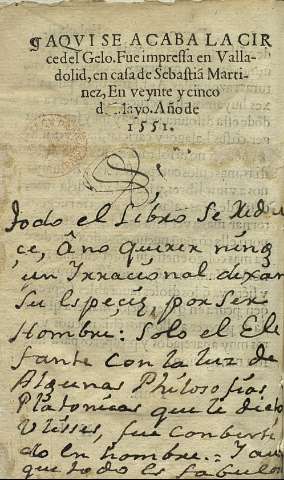 ¶AQVI SE ACABA LA CIR
ce del Gelo. Fue impressa en Valla-
dolid, en casa de Sebastiã Marti-
nez, En veynte y cinco
de Mayo. Año de
1551.
todo el Libro se Redu
ce, â no querer ning.
un Irracional dexar
su Especie, por ser
Hombre: Solo el Ele
fante con la luz de
Algunas Philosofias
Platonicas que le dicto
Ulisses, fue conberti
do en hombre. = I aun
que todo es fabulos